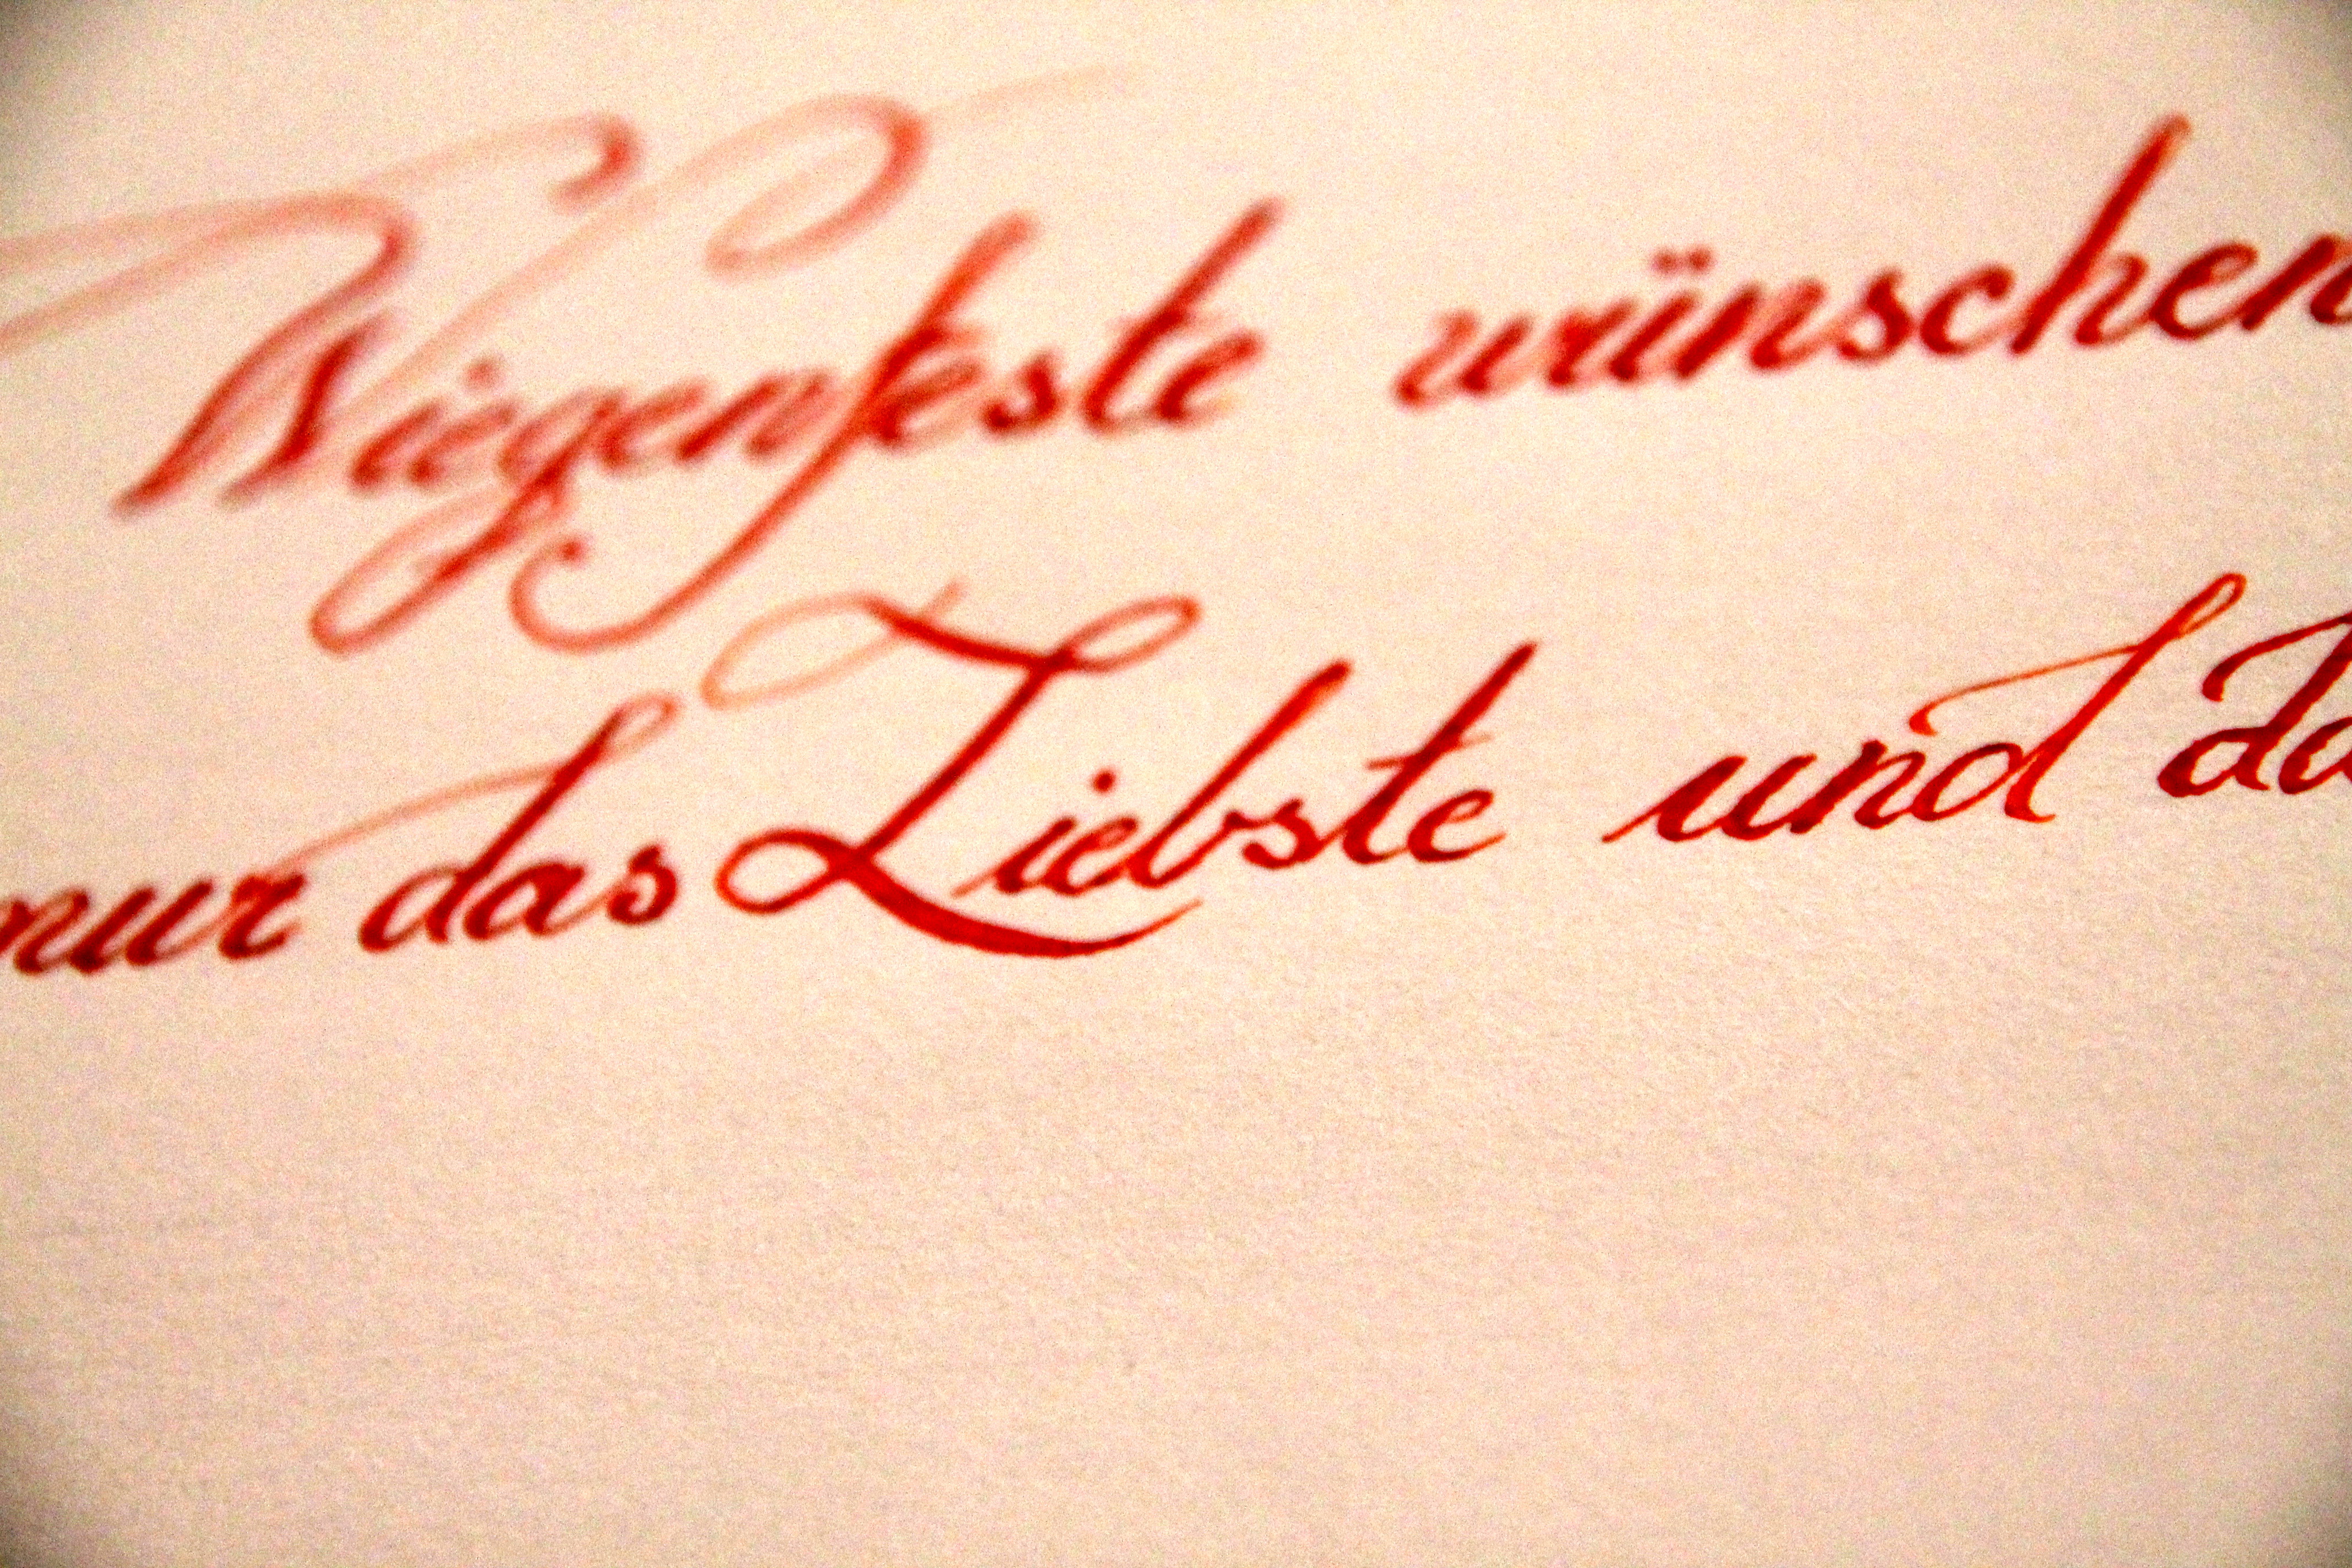 Wiegenfeste wünschen
nur das Liebste und da